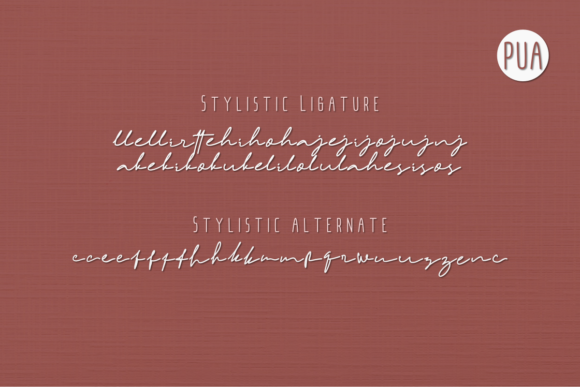 PUA
Stylistic Ligature
llellirttehihohajejijojujnj
akekikokukelilolulahesisos
Stylistic alternate